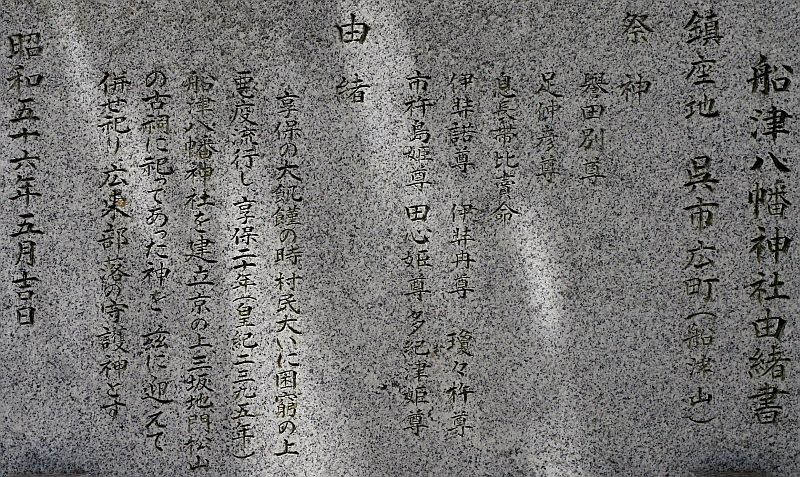 船津八幡神社由緒書
鎮座地 呉市広町(船津山)
祭神
誉田別尊
足仲彦尊
息長帯比売命
伊弉諾尊 伊弉冉尊 瓊々杵尊
市杵島姫尊 田心姫尊 多紀津姫尊
由緒
享保の大飢饉の時村民大いに困窮の上
悪疫流行し、享保二十年(皇紀二三九五年)
船津八幡神社を建立京の上三坂地門松山
の古祠に祀ってあった神を茲に迎えて
併せ祀り広東部落の守護神とす
昭和五十六年五月吉日